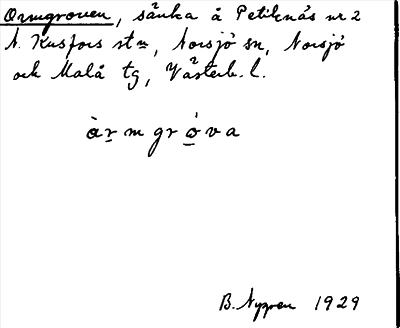 Ormgroven, sänka å Petiknäs nr 2
N. Kusfors stn, Norsjö sn, Norsjö
och Malå tg, Västerb. l.
àr̲mgró̲va
B. Nygren 1929